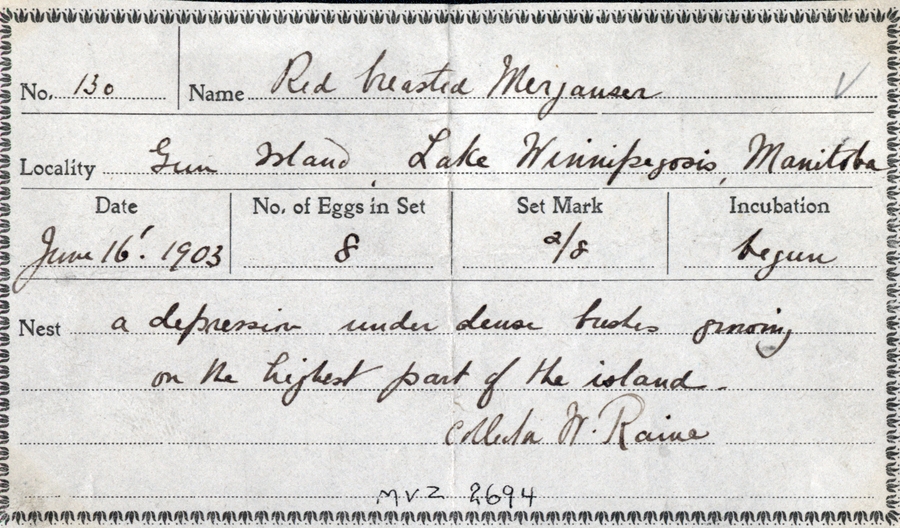 No. 130 Name Red breasted Merganser
Locality Gun Island, Lake Winnipegosis, Manitoba
Date No. of Eggs in Set Set Mark Incubation
June 16' 1903 8 2/8 begun
Nest a depression under dense bushes growing
on the highest part of the island.
Collector W. Raine
MVZ 2694